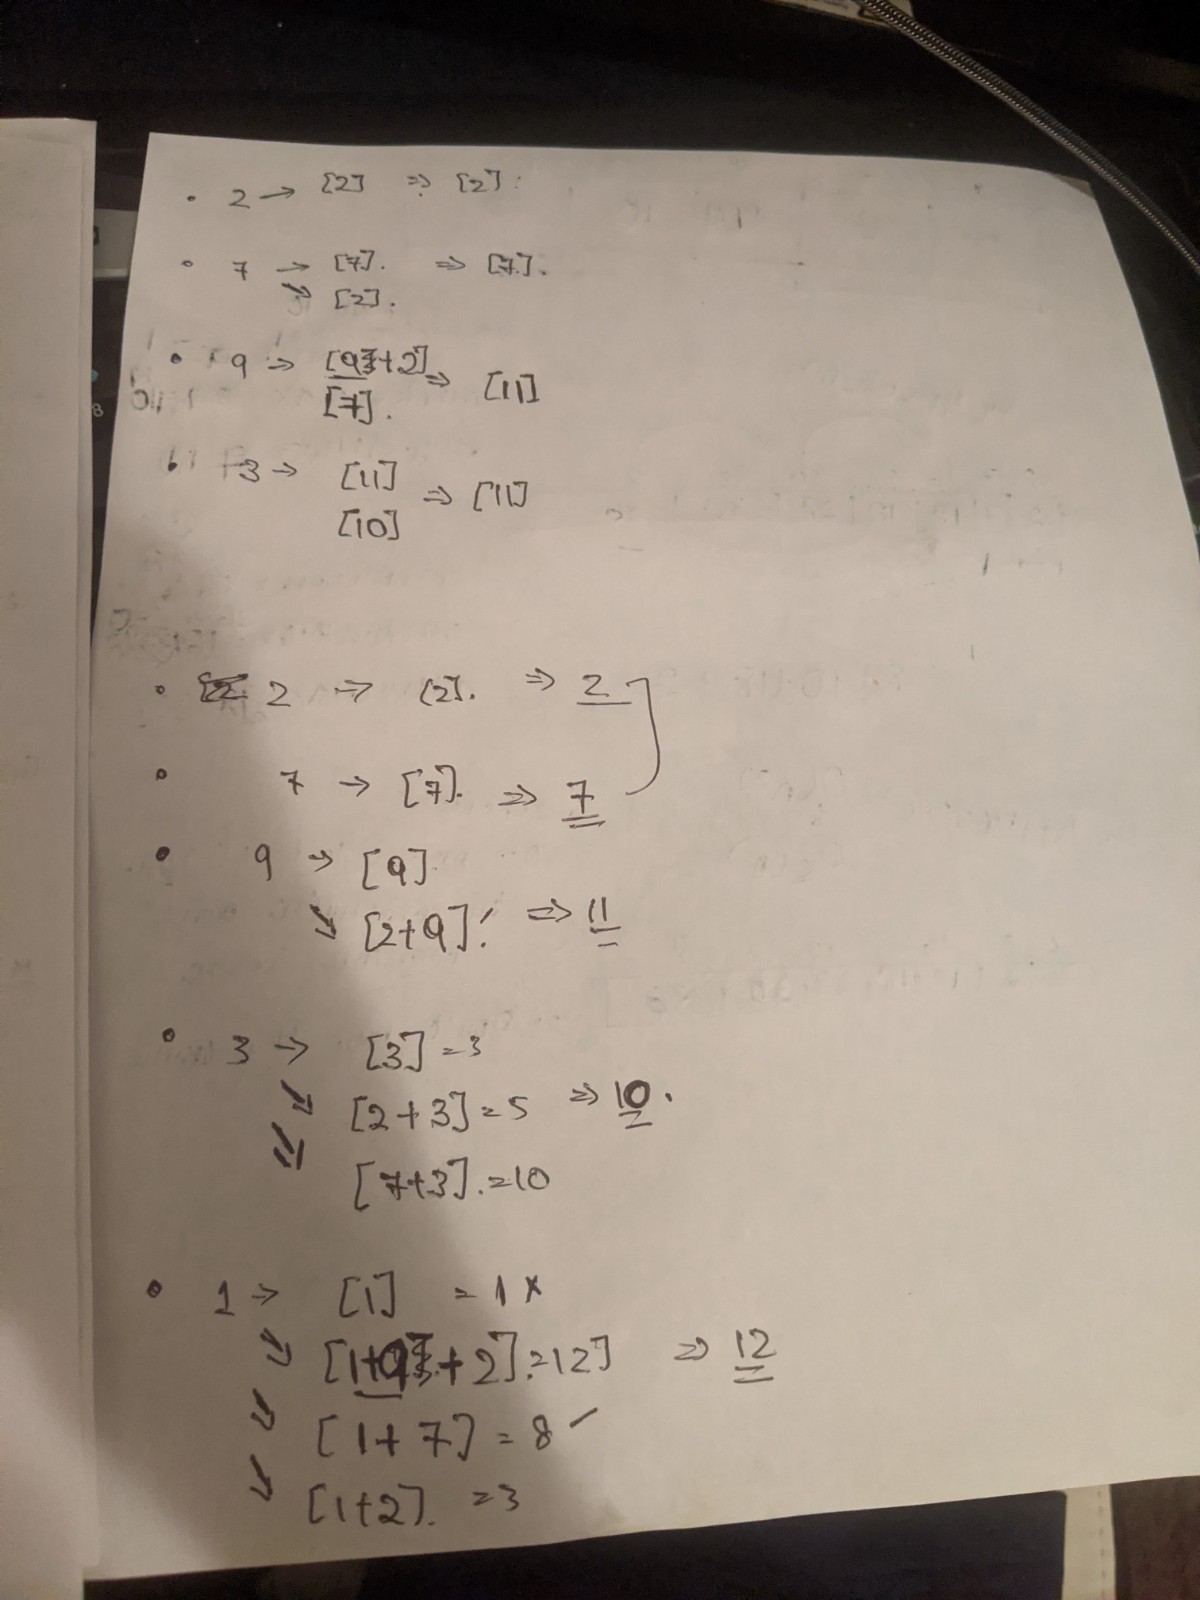 • 2 → [2] ⇒ [2].
• 7 → [7]. ⇒ [7].
↘ [2].
• 9 → [9+2] ⇒ [11]
[7].
• 3 → [11] ⇒ [11]
[10]
• 2 → [2]. ⇒ 2
• 7 → [7]. ⇒ 7
• 9 → [9]
↘ [2+9]. ⇒ 11
• 3 → [3] = 3
↘ [2+3] = 5 ⇒ 10.
↘ [7+3]. = 10
• 1 → [1] = 1 ×
↘ [1+9+2] = 12] ⇒ 12
↘ [1+7] = 8
↘ [1+2]. = 3